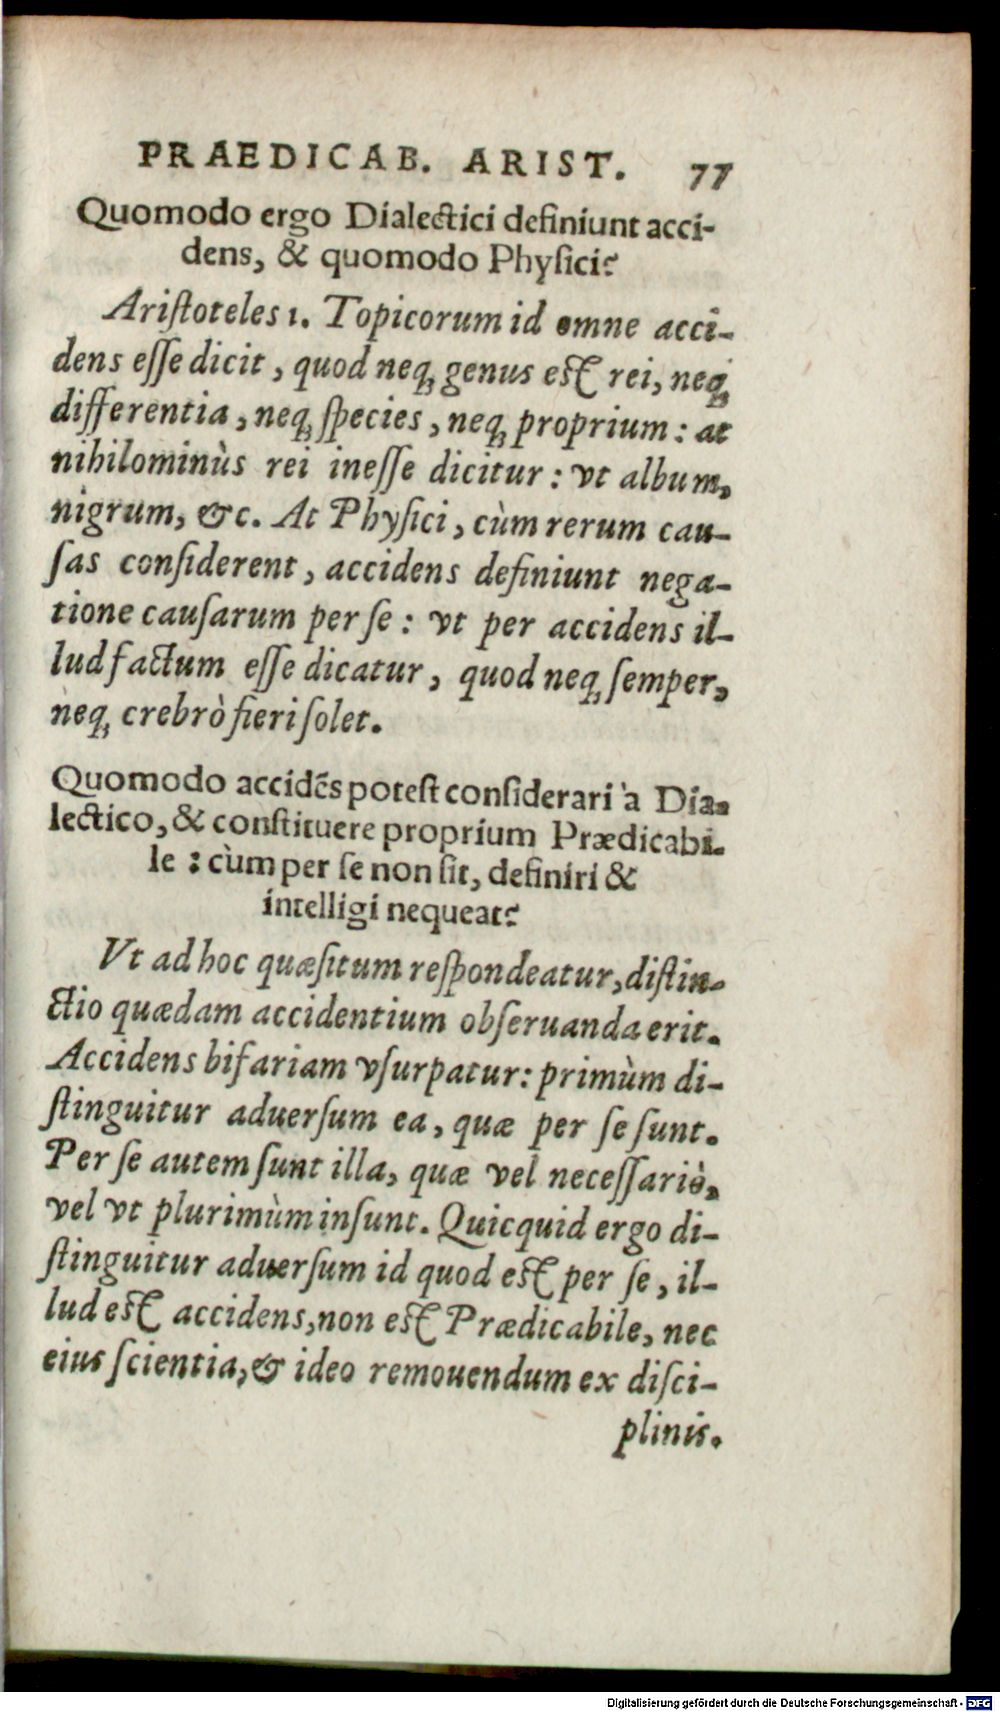 PRAEDICAB. ARIST. 77
Quomodo ergo Dialectici definiunt acci-
dens, & quomodo Physici?
Aristoteles 1. Topicorum id omne acci-
dens esse dicit, quod neq; genus est rei, neq;
differentia, neq; species, neq; proprium: at
nihilominùs rei inesse dicitur: vt album,
nigrum, &c. At Physici, cùm rerum cau-
sas considerent, accidens definiunt nega-
tione causarum per se: vt per accidens il-
lud factum esse dicatur, quod neq; semper,
neq; crebrò fieri solet.
Quomodo accidēs potest considerari à Dia-
lectico, & constituere proprium Prædicabi-
le: cùm per se non sit, definiri &
intelligi nequeat?
Vt ad hoc quæsitum respondeatur, distin-
ctio quædam accidentium obseruanda erit.
Accidens bifariam vsurpatur: primùm di-
stinguitur aduersum ea, quæ per se sunt.
Per se autem sunt illa, quæ vel necessariò,
vel vt plurimùm insunt. Quicquid ergo di-
stinguitur aduersum id quod est per se, il-
lud est accidens, non est Prædicabile, nec
eius scientia, & ideo remouendum ex disci-
plinis.
Digitalisierung gefördert durch die Deutsche Forschungsgemeinschaft - DFG